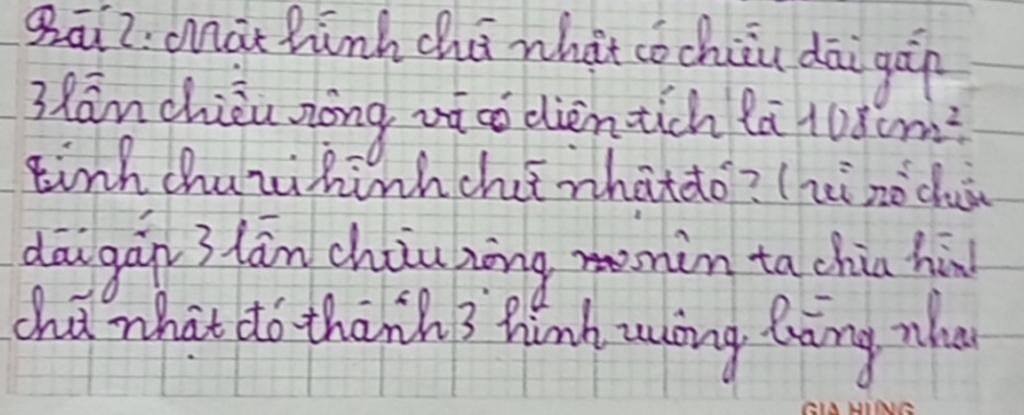 Bài 2: Một hình chữ nhật có chiều dài gấp
3 lần chiều rộng và có diện tích là 108cm².
tính chu vi hình chữ nhật đó? (vì nó chiều
dài gấp 3 lần chiều rộng nên ta chia hình
chữ nhật đó thành 3 hình vuông bằng nhau
GIA HƯNG